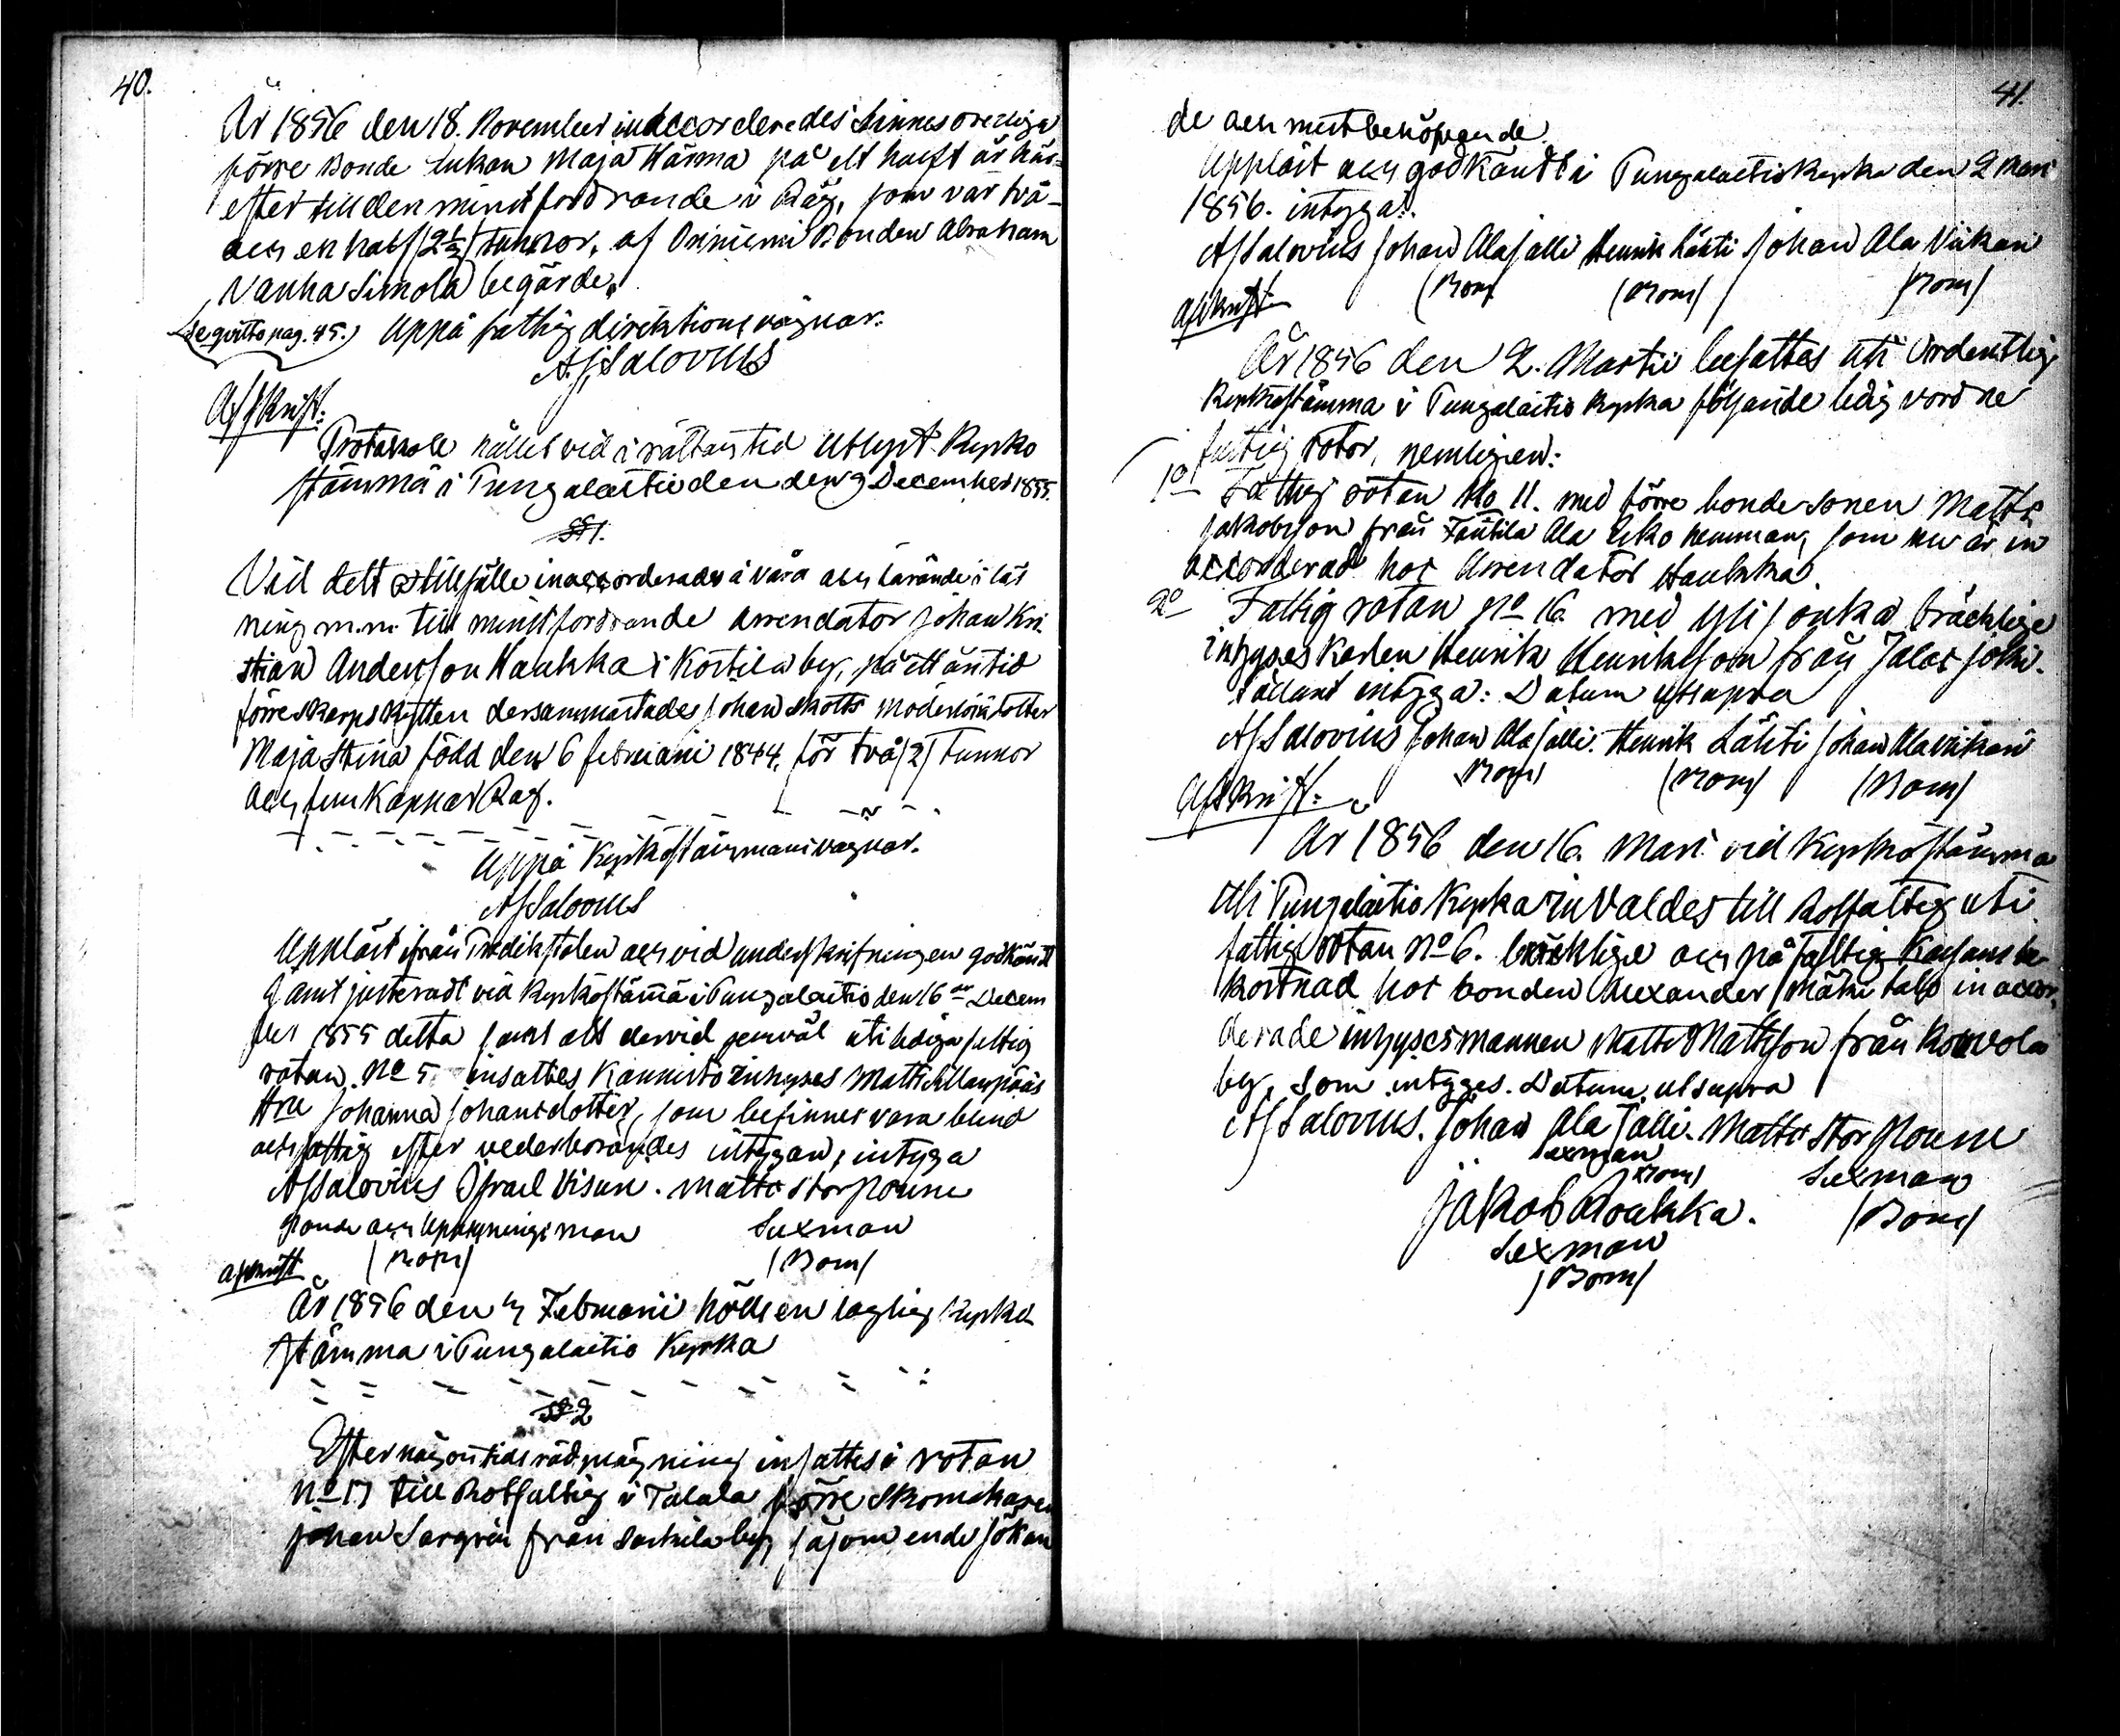 40.
År 1856 den 18. November inaccorderades Sinnesoredige
förre Bonde Enkan Maja Härmä på ett halft år här-
efter till den minstfordrande i Råg, som var två-
och en half /2½/ tunnor, af Oriniemi Bonden Abraham
Vanha Simola begärde.
(Se qvitto pag. 45.) Uppå fattig direktions vägnar:
A.J. Salovius
Afskrift:
Protokoll hållet vid i rättan tid utlyst Kyrko
stämma i Pungalaitio den 9 December 1855.
§ 1.
Vid dett tillfälle inaccorderades å vård och lärande i läs
ning m.m. till minstfordrande Arrendator Johan Kri
stian Andersson Haukka i Kostila by, på ett års tid
förre skarpskytten dersammastädes Johan Skotts moderlösa dotter
Maja Stina född den 6 februarii 1844, för två /2/ Tunnor
och fem Kappar Råg.
Uppå Kyrkostämmans vägnar.
AJSalovius
Uppläst ifrån Predikstolen och vid underskrifningen godkändt
samt justeradt vid Kyrkostämma i Pungalaitio den 16de Decem
ber 1855 detta samt att dervid genväl uti lediga fattig
rotan No 5 insattes Kannisto inhyses Matts
Hru Johanna Johansdotter, som befinnes vara blind
och fattig efter vederbörandes intygan, intyga
AJSalovius Israel Visuri. Matts Stor Ronni
Bonde och Uppsyningsman Sexman
(Bom) (Bom)
Afskrift
År 1856 den 17 Februarii hölls en laglig Kyrko
stämma i Pungalaitio Kyrka
§ 2
Efter någon tids rådplägning insattes i rotan
No 17 till Rotfattig i Talala förre skomakaren
Johan Sorgren från Sarkila by, såsom ende sökan
41.
de och mestbehöfvande.
Uppläst och godkändt i Pungalaitio Kyrka den 2 Mars
1856. intyga:
AJSalovius Johan Ala Jalli Henrik Lähti Johan Ala Vikari
(Bom) (Bom) (Bom)
Afskrift
År 1856 den 2. Martii besattes uti Ordentlig
Kyrkostämma i Pungalaitio Kyrka följande ledig vordne
fattig rotor, nemligen:
1o Fattig rotan No 11. med förre bonde Sonen Matts
Jakobsson från Fantila Ala Erko hemman, som nu är in
accorderad hos Arrendator Haukka.
2o Fattig rotan No 16. med Ylisonka bräcklige
inhyses Karlen Henrik Henriksson från Jalasjoki.
sådant intyga: Datum utsupra
AJSalovius Johan Ala Jalli. Henrik Lähti Johan Ala Vikari
(Bom) (Bom) (Bom)
Afskrift:
År 1856 den 16. Mars vid Kyrkostämma
uti Pungalaitio Kyrka invaldes till Rotfattig uti
fattig rotan No 6. bräcklige och på fattig Kassans be
kostnad hos bonden Alexander Mäkitalo inaccor
derade inhysesmannen Matts Mattsson från Kouvola
by, som intyges. Datum utsupra
AJSalovius. Johan Ala Jalli. Matts Stor Ronni
Sexman Sexman
(Bom) (Bom)
Jakob Roukka.
Sexman
(Bom)